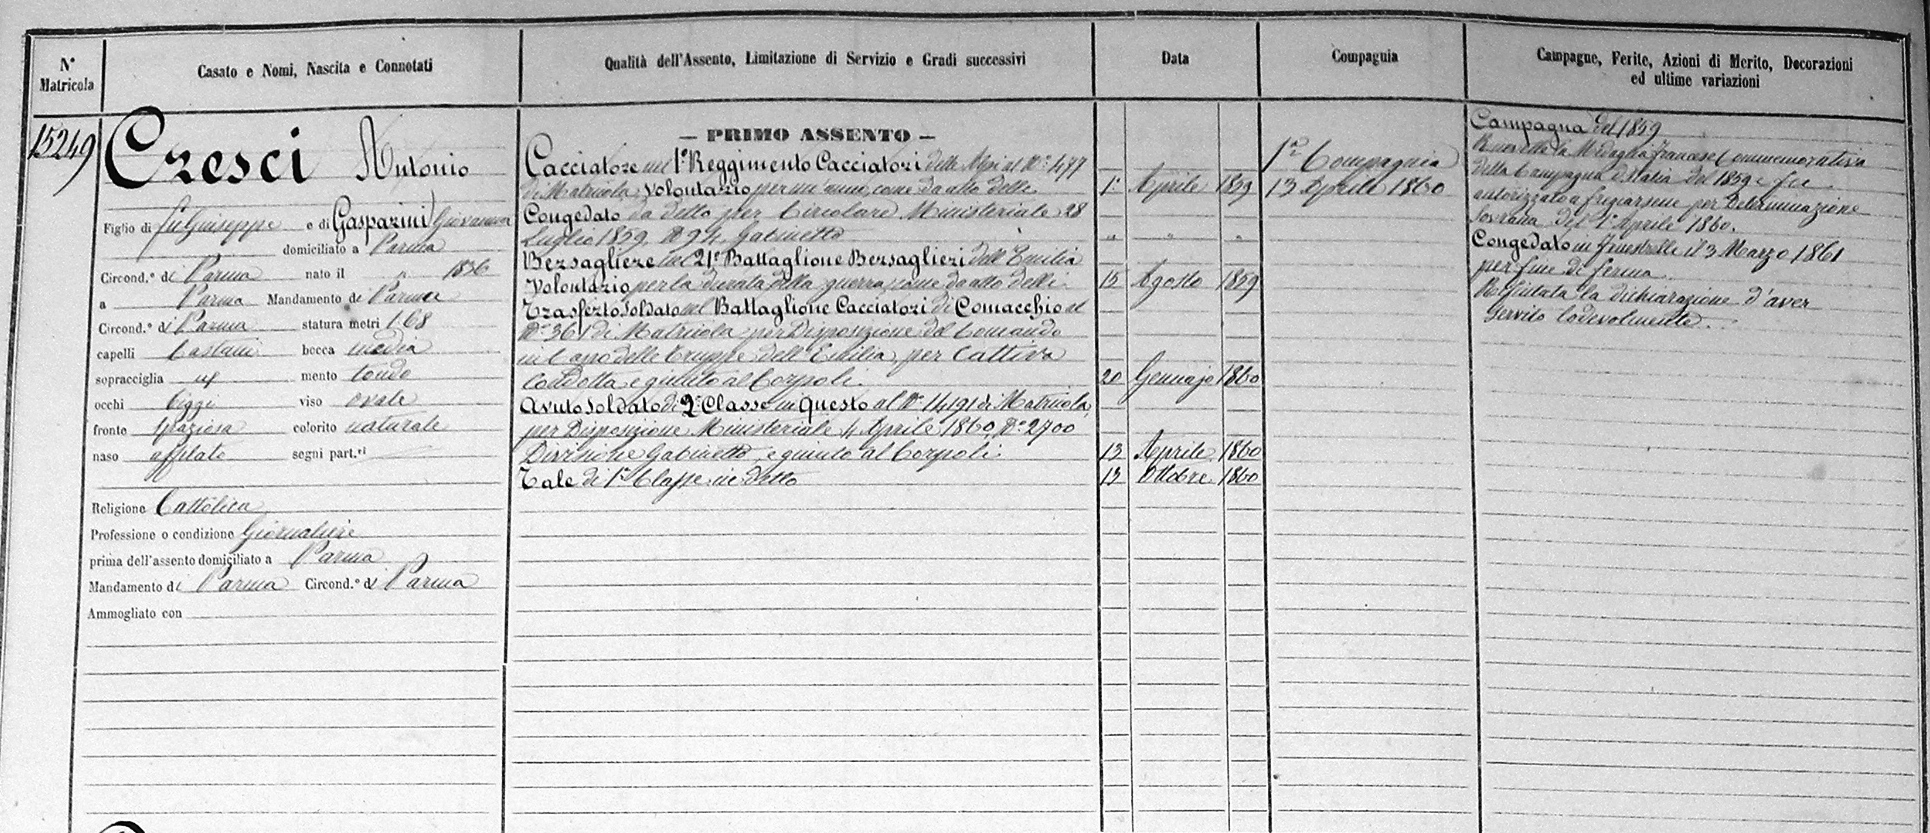 N° Matricola
Casato e Nomi, Nascita e Connotati
Qualità dell'Assento, Limitazione di Servizio e Gradi successivi
Data
Compagnia
Campagne, Ferite, Azioni di Merito, Decorazioni
ed ultime variazioni
15249
Cresci Antonio
Figlio di fu Giuseppe e di Gasparini Giovanna
domiciliato a Parma
Circond.° di Parma nato il " 1836
a Parma Mandamento di Parma
Circond.° di Parma statura metri 1,68
capelli Castani bocca media
sopracciglia id mento tondo
occhi bigi viso ovale
fronte spaziosa colorito naturale
naso affilato segni part.ri
Religione Cattolica
Professione o condizione Giornaliere
prima dell'assento domiciliato a Parma
Mandamento di Parma Circond.° di Parma
Ammogliato con
— PRIMO ASSENTO —
Cacciatore nel 1° Reggimento Cacciatori delle Alpi al N° 477
di Matricola, Volontario per un anno, come da atto delli 1° Aprile 1859
Congedato da detto per Circolare Ministeriale 28
Luglio 1859, N° 94, Gabinetto " " "
Bersagliere nel 21° Battaglione Bersaglieri dell'Emilia
Volontario per la durata della guerra, come da atto delli 15 Agosto 1859
Trasferto Soldato nel Battaglione Cacciatori di Comacchio al
N° 361 di Matricola per Disposizione del Comando
in Capo delle Truppe dell'Emilia, per Cattiva
Condotta, e giunto al Corpo li 20 Gennajo 1860
Avuto Soldato di 2ª Classe in Questo al N° 14191 di Matricola,
per Disposizione Ministeriale 4 Aprile 1860, N° 2700
Divisione Gabinetto, e giunto al Corpo li 13 Aprile 1860
Tale di 1ª Classe in detto 13 Ottobre 1860
1ª Compagnia
13 Aprile 1860
Campagna del 1859
la Medaglia Francese Commemorativa
della Campagna d'Italia del 1859 e fu
autorizzato a fregiarsene per Determinazione
Sovrana del 1° Aprile 1860.
Congedato in Fenestrelle il 3 Marzo 1861
per fine di ferma
Rifiutata la dichiarazione d'aver
servito lodevolmente.